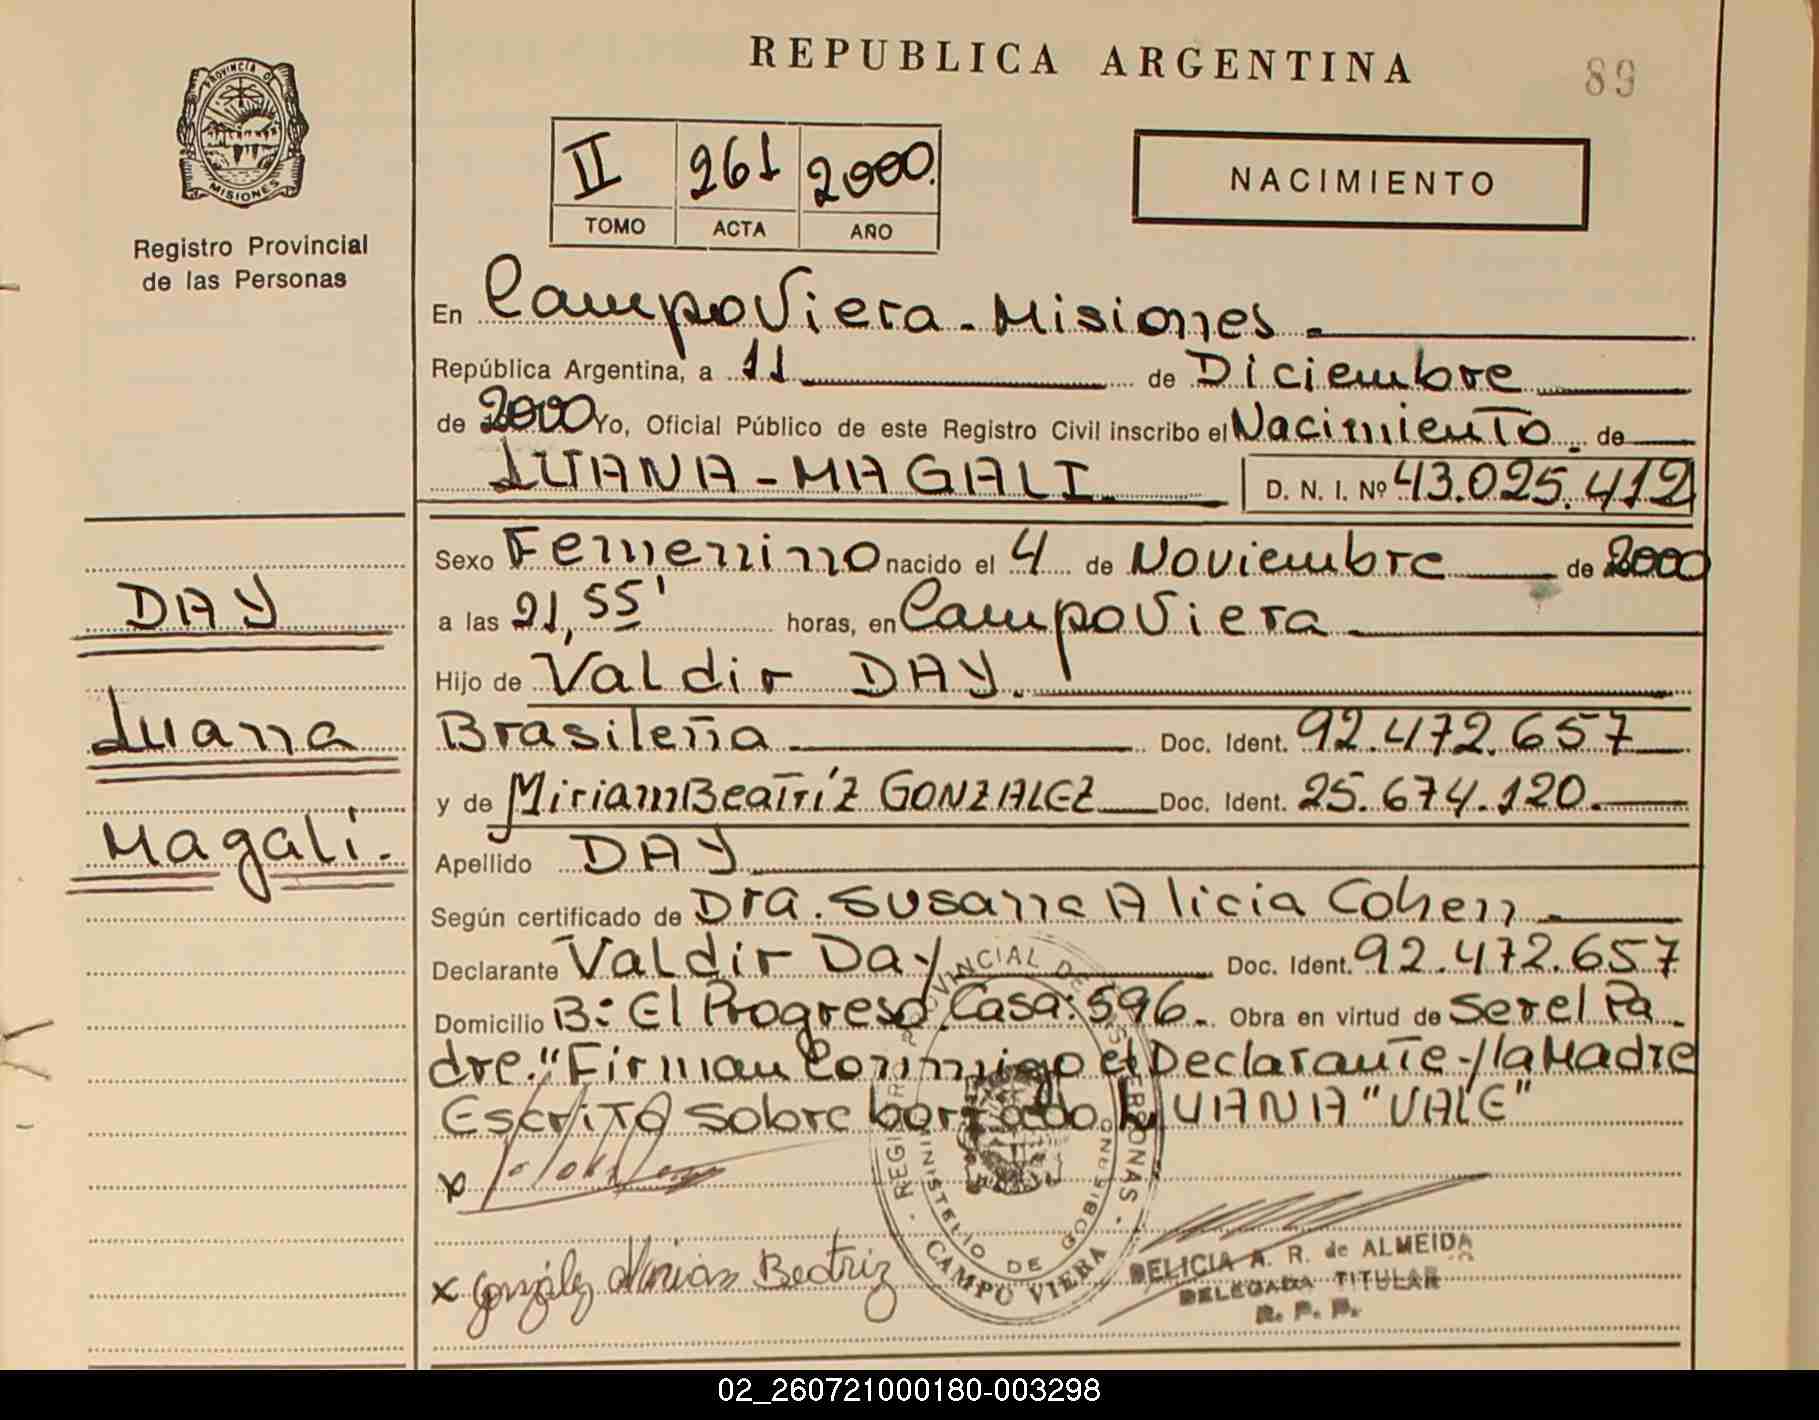 REPUBLICA ARGENTINA
89
PROVINCIA DE
MISIONES
Registro Provincial
de las Personas
II 261 2000.
TOMO ACTA AÑO
NACIMIENTO
En Campo Viera - Misiones.
República Argentina, a 11 de Diciembre
de 2000 Yo, Oficial Público de este Registro Civil inscribo el Nacimiento. de
LUANA - MAGALI. D. N. I. Nº 43.025.412
Sexo Femenino nacido el 4 de Noviembre de 2000
a las 21,55' horas, en Campo Viera
Hijo de Valdir DAY.
Brasileña Doc. Ident. 92.472.657
y de Miriam Beatríz GONZALEZ Doc. Ident. 25.674.120.
Apellido DAY
Según certificado de Dra. Susana Alicia Cohen
Declarante Valdir Day Doc. Ident. 92.472.657
Domicilio B: El Progreso. Casa: 596. Obra en virtud de Ser el Pa
dre. "Firman Conmigo el Declarante y la Madre
Escrito sobre borrado LUANA "VALE"
DAY
Luana
Magali.
x
x González Miriam Beatriz
REGISTRO PROVINCIAL DE LAS PERSONAS
MINISTERIO DE GOBIERNO
CAMPO VIERA
DELICIA A. R. de ALMEIDA
DELEGADA TITULAR
R. P. P.
02_260721000180-003298